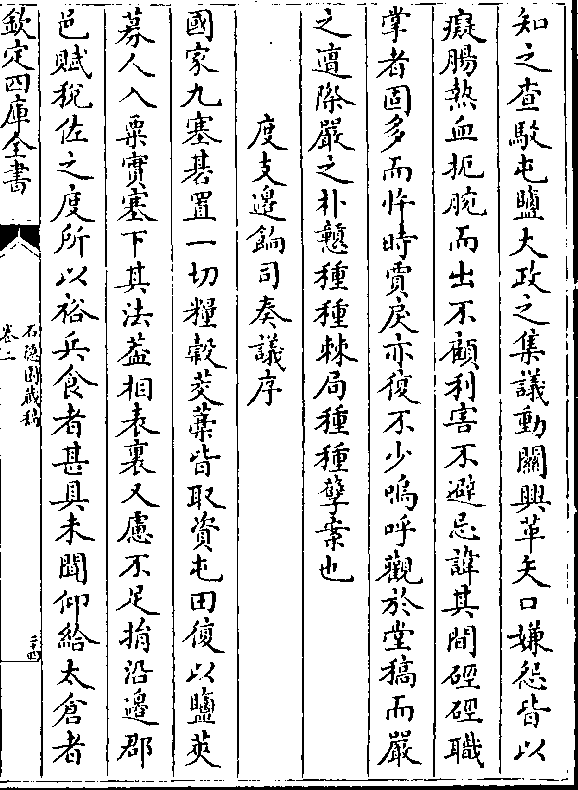 知之查駁屯鹽大政之集議動關興革矢口嫌怨皆以
癡腸熱血扼腕而出不顧利害不避忌諱其間硜硜職
掌者固多而忤時賈戾亦復不少嗚呼觀於堂稿而嚴
之邅際嚴之朴戇種種棘局種種孽案也
度支邊餉司奏議序
國家九塞碁置一切糧穀茭藁皆取資屯田復以鹽莢
募人入粟實塞下其法葢相表裏又慮不足捐沿邊郡
邑賦稅佐之度所以裕兵食者甚具未聞仰給太倉者
欽定四庫全書
石隱園藏稿
卷二
二十四